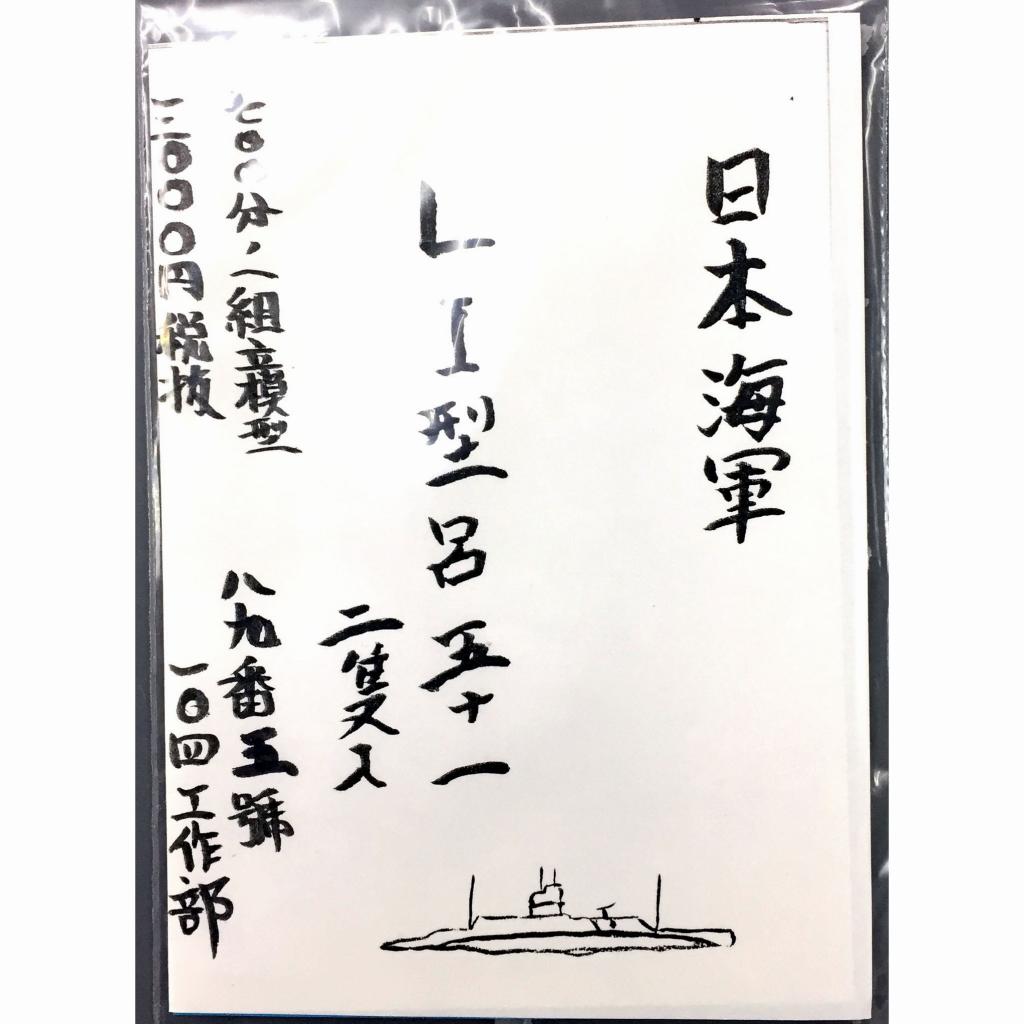 日本海軍
L I型呂五十一
二隻入
七〇〇分ノ一組立模型
八九番五號
三〇〇〇円税抜
一〇四工作部